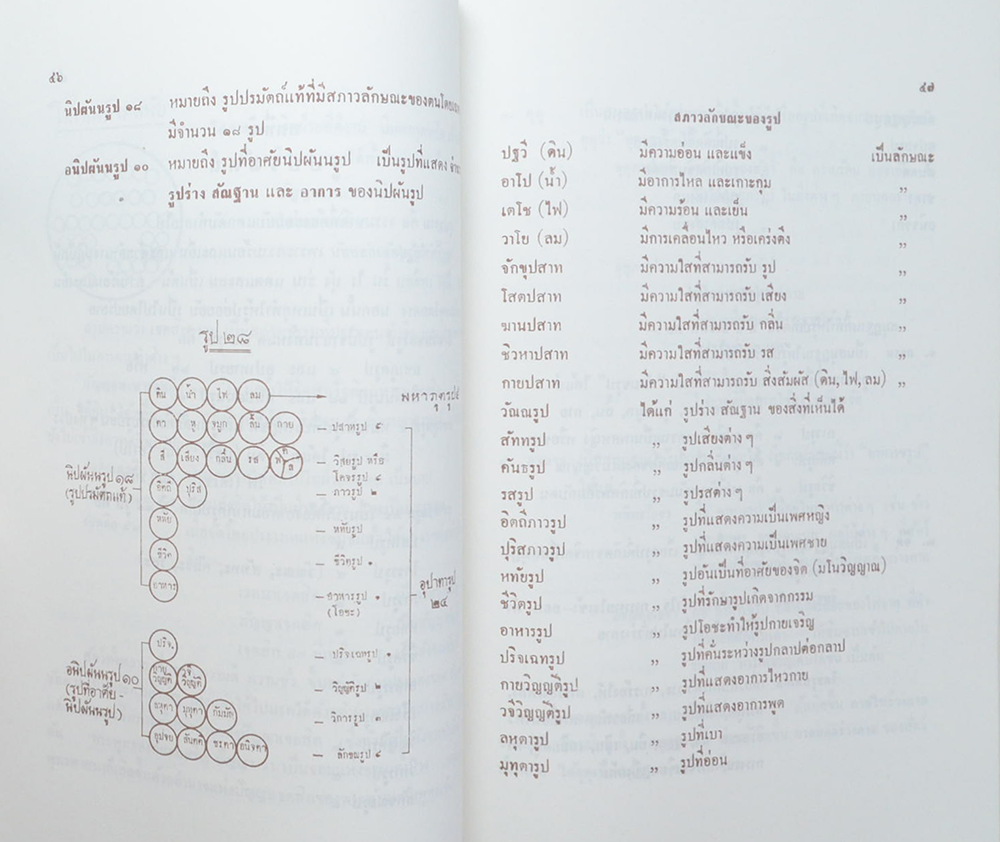 ๕๖
นิปผันนรูป ๑๘ หมายถึง รูปปรมัตถ์แท้ที่มีสภาวลักษณะของตนโดยเฉพาะ
มีจำนวน ๑๘ รูป
อนิปผันนรูป ๑๐ หมายถึง รูปที่อาศัยนิปผันนรูป เป็นรูปที่แสดง
รูปร่าง สัณฐาน และ อาการ ของนิปผันรูป
รูป ๒๘
ดิน น้ำ ไฟ ลม มหาภูตรูป ๔
ตา หู จมูก ลิ้น กาย – ปสาทรูป ๕
สี เสียง กลิ่น รส – วิสัยรูป หรือ
โคจรรูป ๔
นิปผันนรูป ๑๘
(รูปปรมัตถแท้)
อิตถี ปุริส – ภาวรูป ๒
หทัย – หทัยรูป
ชีวิต – ชีวิตรูป ๑
อาหาร – อาหารรูป
(โอชะ)
อุปาทารูป
๒๔
ปริจ. – ปริจเฉทรูป ๑
อนิปผันนรูป ๑๐
(รูปที่อาศัย-
นิปผันนรูป)
กายวิญญัติ วจีวิญญัติ – วิญญัติรูป ๒
ลหุตา มุทุตา กัมมัญ – วิการรูป ๓
อุปจย สันตติ ชรตา อนิจจตา – ลักขณรูป ๔
๕๗
สภาวลักษณะของรูป
ปฐวี (ดิน) มีความอ่อน และแข็ง เป็นลักษณะ
อาโป (น้ำ) มีอาการไหล และเกาะกุม ,,
เตโช (ไฟ) มีความร้อน และเย็น ,,
วาโย (ลม) มีการเคลื่อนไหว หรือเคร่งตึง ,,
จักขุปสาท มีความใสที่สามารถรับ รูป ,,
โสตปสาท มีความใสที่สามารถรับ เสียง ,,
ฆานปสาท มีความใสที่สามารถรับ กลิ่น ,,
ชิวหาปสาท มีความใสที่สามารถรับ รส ,,
กายปสาท มีความใสที่สามารถรับ สิ่งสัมผส (ดิน, ไฟ, ลม) ,,
วัณณรูป ได้แก่ รูปร่าง สัณฐาน ของสิ่งที่เห็นได้
สัททรูป ,, รูปเสียงต่าง ๆ
คันธรูป ,, รูปกลิ่นต่าง ๆ
รสรูป ,, รูปรสต่าง ๆ
อิตถีภาวรูป ,, รูปที่แสดงความเป็นเพศหญิง
ปุริสภาวรูป ,, รูปที่แสดงความเป็นเพศชาย
หทัยรูป ,, รูปอันเป็นที่อาศัยของจิต (มโนวิญญาณ)
ชีวิตรูป ,, รูปที่รักษารูปเกิดจากกรรม
อาหารรูป ,, รูปโอชะทำให้รูปกายเจริญ
ปริจเฉทรูป ,, รูปที่คั่นระหว่างรูปกลาปต่อกลาป
กายวิญญัติรูป ,, รูปที่แสดงอาการไหวกาย
วจีวิญญัติรูป ,, รูปที่แสดงอาการพูด
ลหุตารูป ,, รูปที่เบา
มุทุตารูป ,, รูปที่อ่อน